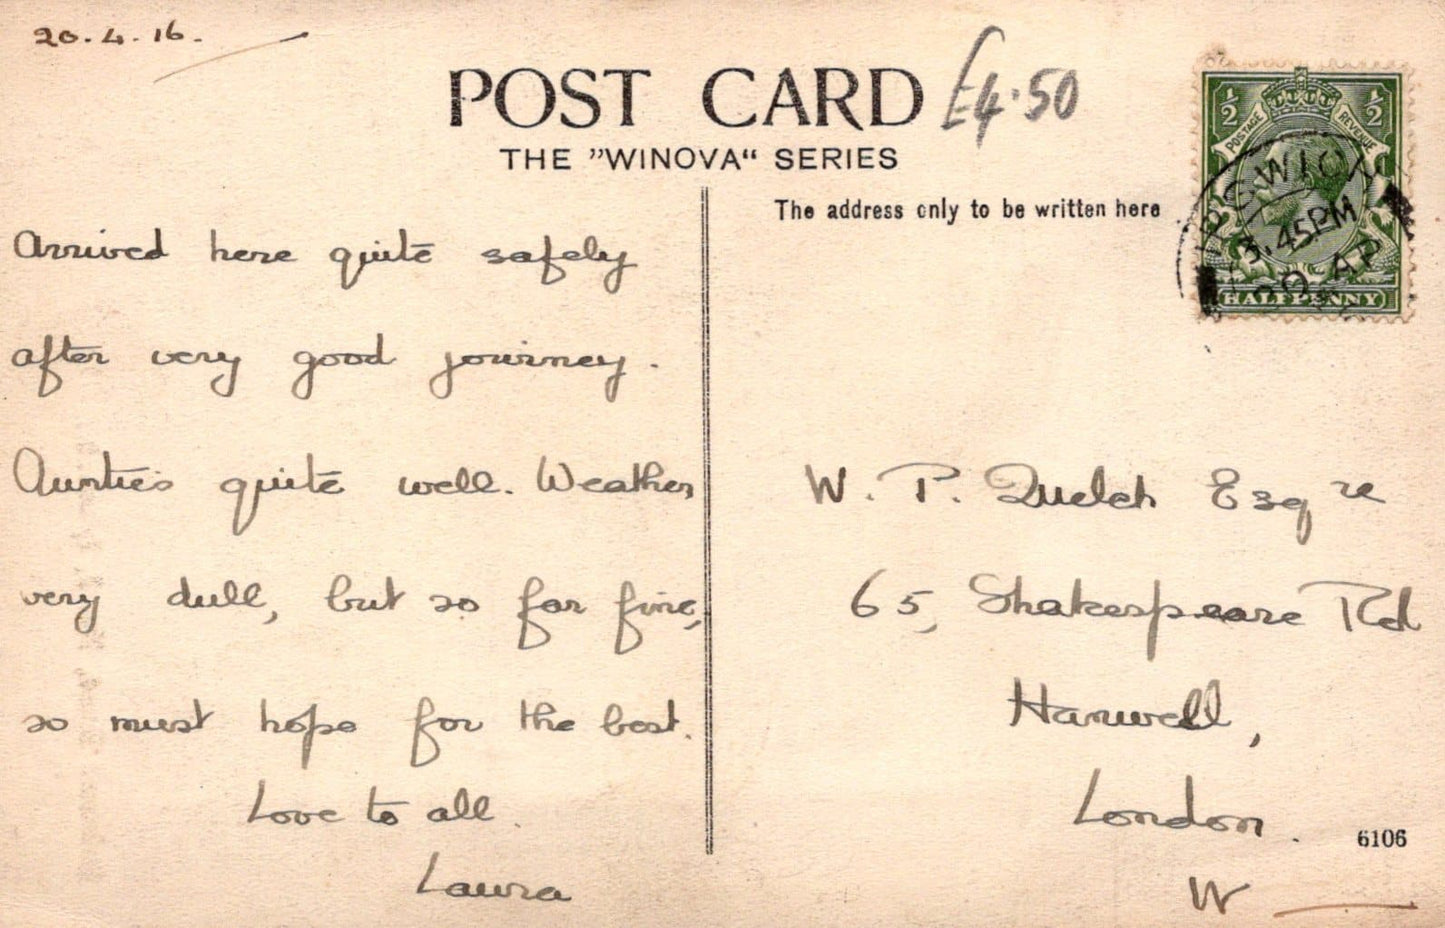 20.4.16.
POST CARD £4.50
THE "WINOVA" SERIES
The address only to be written here
½ ½
POSTAGE REVENUE
IPSWICH
3.45PM
20 AP
HALFPENNY
Arrived here quite safely
after very good journey.
Auntie's quite well. Weather
very dull, but so far fine,
so must hope for the best.
Love to all.
Laura
W. P. Quelch Esqre
65, Shakespeare Rd
Hanwell,
London.
W
6106